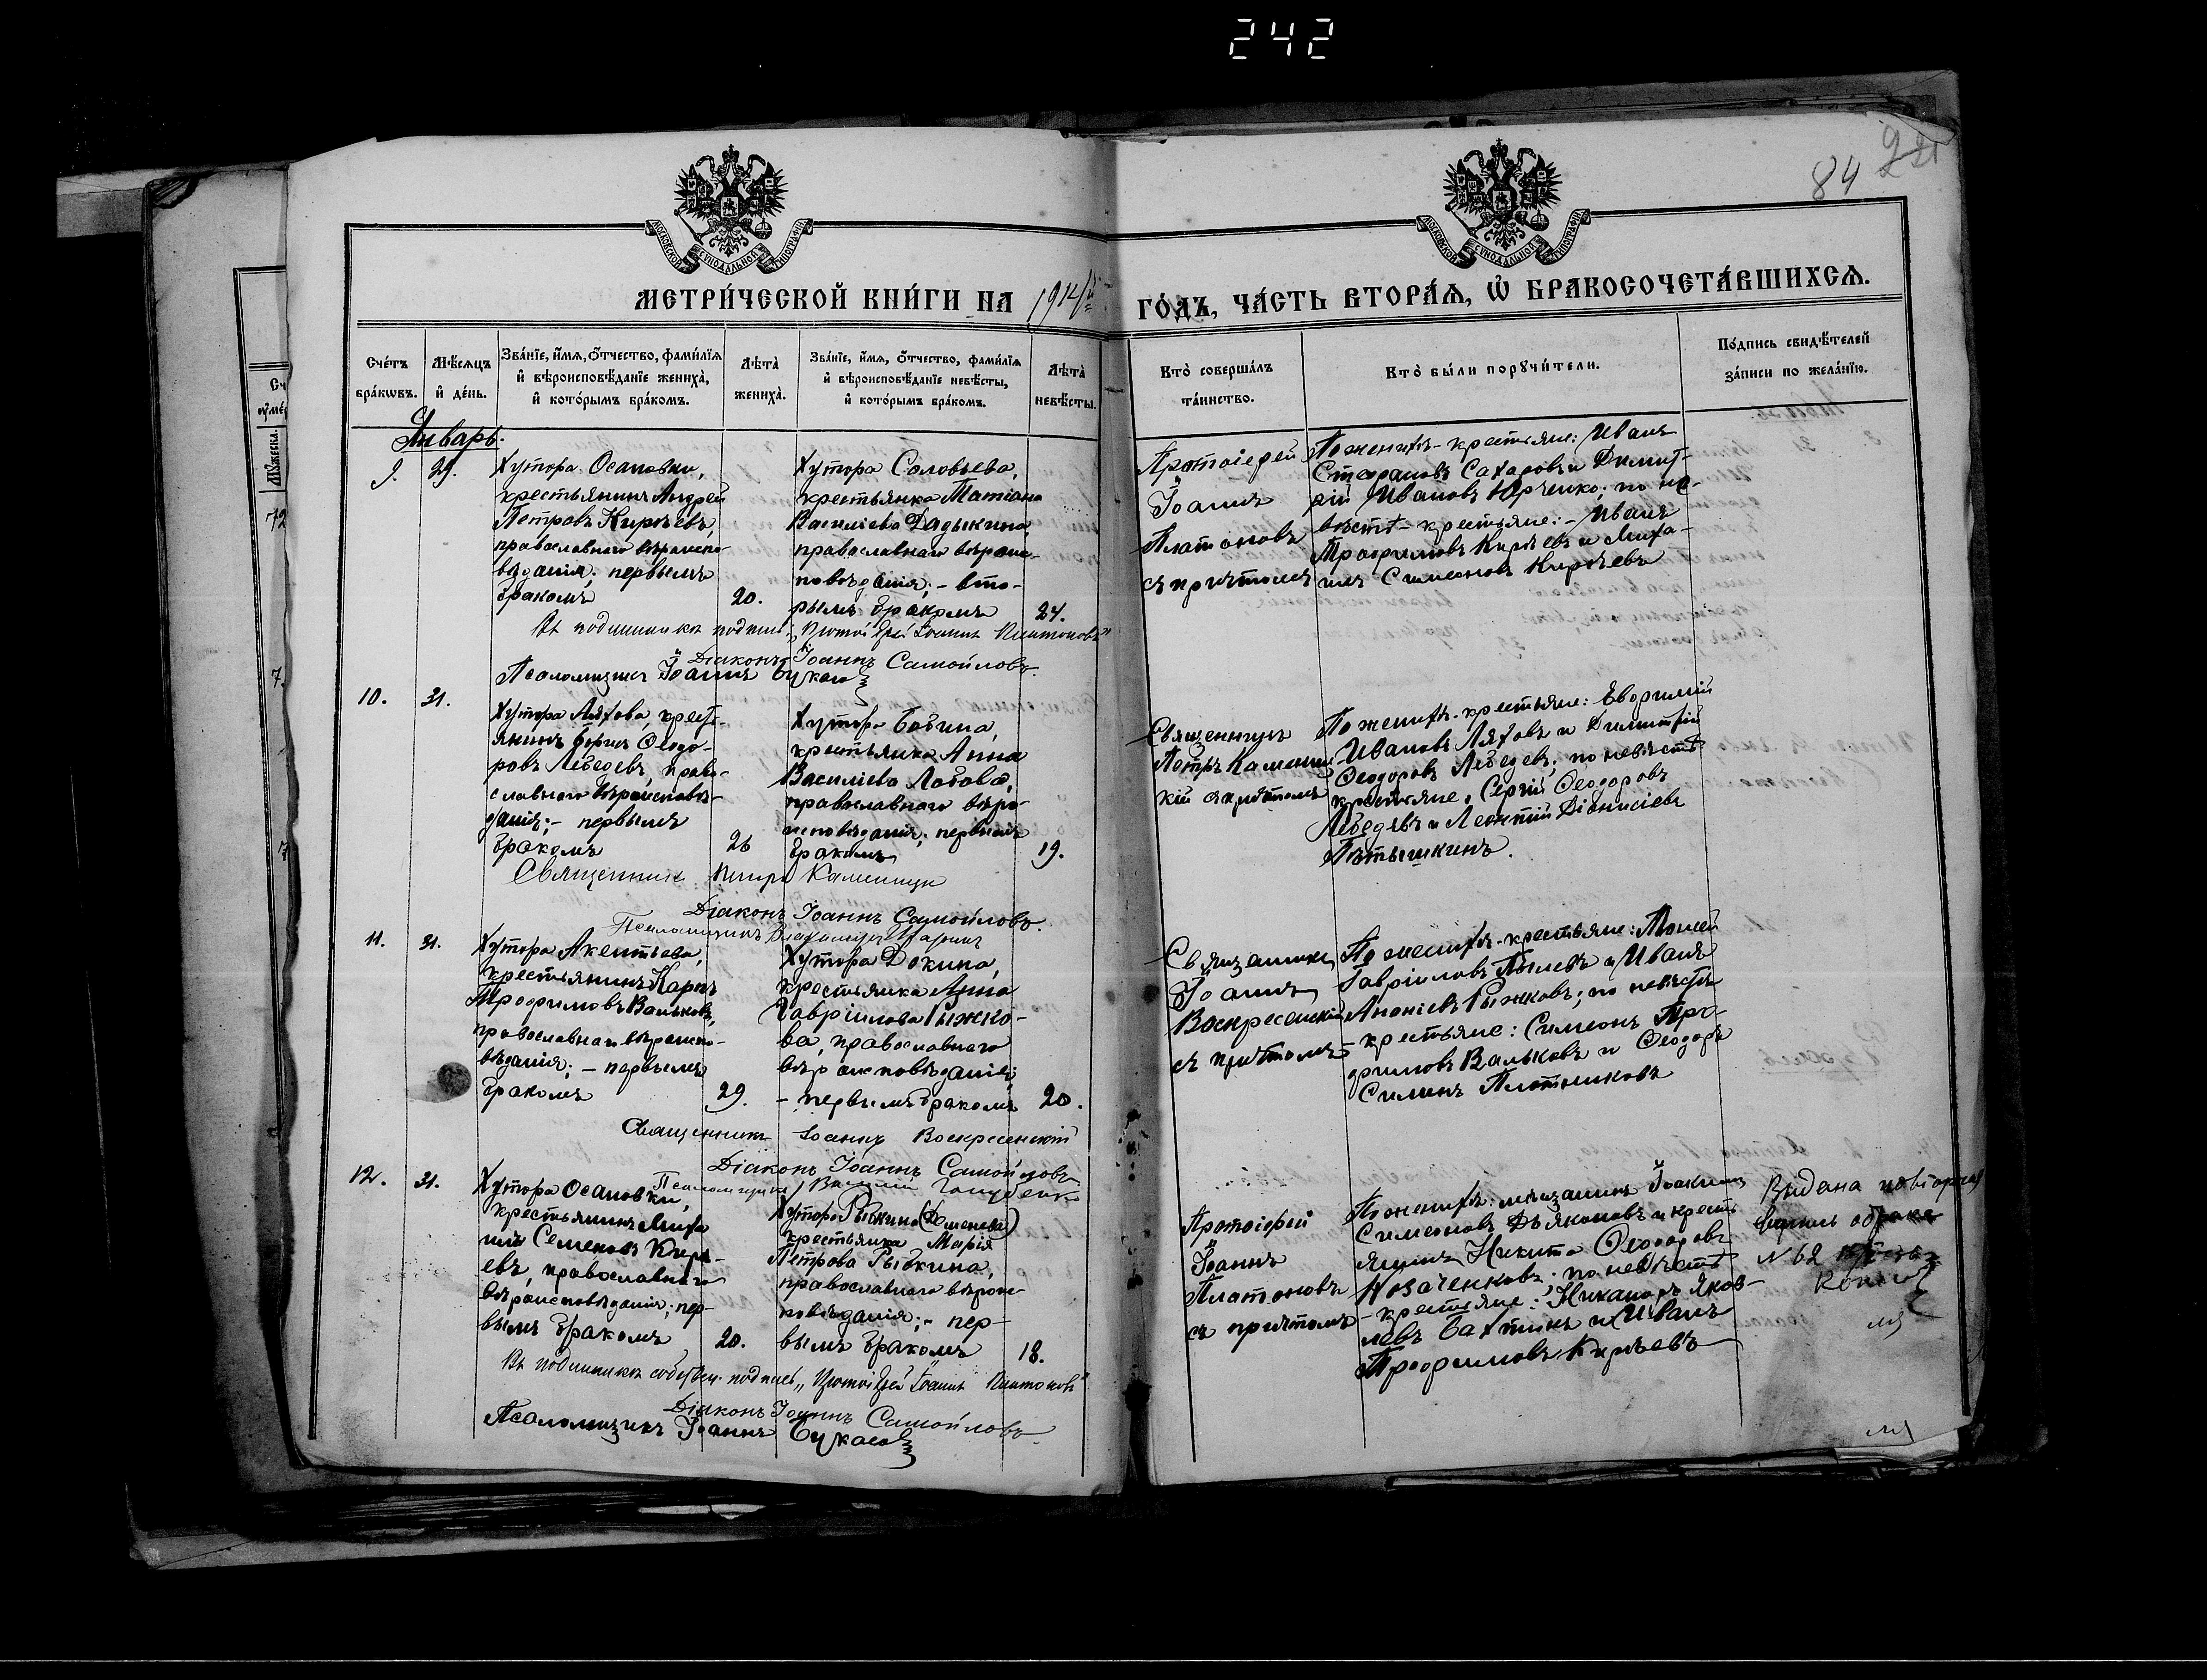 242
84
МОСКОВСКОЙ СѴНОДАЛЬНОЙ ТИПОГРАФІИ
МОСКОВСКОЙ СѴНОДАЛЬНОЙ ТИПОГРАФІИ
МЕТРИ́ЧЕСКОЙ КНИ́ГИ НА 1914
ГО́ДЪ, ЧА́СТЬ ВТОРА́Ѧ, Ѡ҆ БРАКОСОЧЕТА́ВШИХСѦ.
Сче́тъ бра́кѡвъ.
Мѣ́сѧцъ и҆ де́нь.
Зва́нїе, и҆́мѧ, о҆́тчество, фами́лїѧ и҆ вѣроисповѣ́данїе жениха̀, и҆ кото́рымъ бра́комъ.
Лѣ́та̀ жениха̀.
Зва́нїе, и҆́мѧ, о҆́тчество, фами́лїѧ и҆ вѣроисповѣ́данїе невѣ́сты, и҆ кото́рымъ бра́комъ.
Лѣ́та̀ невѣ́сты.
Кто̀ соверша́лъ та́инство.
Кто̀ бы́ли порꙋчи́тели.
По́дпись свидѣ́телей за́писи по жела́нїю.
Январь.
9.
29.
Хутора Осаповки,
крестьянинъ Андрей
Петровъ Кирѣевъ,
православнаго вѣроиспо-
вѣданія; первымъ
бракомъ
20.
Хутора Соловьева,
крестьянка Татіана
Василіева Дядькина,
православнаго вѣроис-
повѣданія; - вто-
рымъ бракомъ
24.
Протоіерей
Іоаннъ
Платоновъ
съ причтомъ
По женихѣ - крестьяне: Иванъ
Стефановъ Сахаровъ и Димит-
рій Ивановъ Юрченко; по не-
вѣстѣ - крестьяне: - Иванъ
Трофимовъ Кирѣевъ и Миха-
илъ Симеоновъ Кирѣевъ
Въ подлинникѣ подпись: „Протоіерей Іоаннъ Платоновъ"
Діаконъ Іоаннъ Самойловъ.
Псаломщикъ Іоаннъ Букасов
10.
31.
Хутора Ляхова, крест-
янинъ Борисъ Ѳеодо-
ровъ Лебедевъ, право-
славнаго вѣроисповѣ-
данія; - первымъ
бракомъ
26
Хутора Бабина,
крестьянка Анна
Василіева Лобова,
православнаго вѣро-
исповѣданія; первымъ
бракомъ
19.
Священникъ
Петръ Каменец-
кій съ причтомъ
По женихѣ - крестьяне: Евфимій
Ивановъ Ляховъ и Димитрій
Ѳеодоровъ Лебедевъ; по невѣстѣ
крестьяне, Сергій Ѳеодоровъ
Лебедевъ и Леонтій Діонисіевъ
Пятышкинъ.
Священникъ Петръ Каменецк
Діаконъ Іоаннъ Самойловъ.
Псаломщикъ
11.
31.
Хутора Акентьева,
крестьянинъ Карпъ
Трофимовъ Вальковъ,
православнаго вѣроиспо-
вѣданія; - первымъ
бракомъ
29.
Хутора Докина,
крестьянка Анна
Гавріилова Рыжко-
ва, православнаго
вѣроисповѣданія;
- первымъ бракомъ
20.
Священникъ
Іоаннъ
Воскресенскій
съ причтомъ
По женихѣ - крестьяне: Моисей
Гавріиловъ Пылевъ и Иванъ
Ананіевъ Рыжковъ; по невѣстѣ
- крестьяне: Симеонъ Тро-
фимовъ Вальковъ и Ѳеодоръ
Силинъ Плотниковъ
Священникъ Іоаннъ Воскресенскій
Діаконъ Іоаннъ Самойловъ
Псаломщикъ Василій
12.
31.
Хутора Осаповки,
крестьянинъ Миха
илъ Семеновъ Кирѣ-
евъ, православнаго
вѣроисповѣданія; пер-
вымъ бракомъ
20.
Хутора Рыбкина (Семенева)
крестьянка Марія
Петрова Рыбкина,
православнаго вѣроис-
повѣданія; - пер-
вымъ бракомъ
18.
Протоіерей
Іоаннъ
Платоновъ
съ причтомъ
По женихѣ: мѣщанинъ Іоакимъ
Симеоновъ Дьяконовъ и крест
янинъ Никита Ѳеодоровъ
Козаченковъ; по невѣстѣ
- крестьяне: Никаноръ Яков-
левъ Бахтинъ и Иванъ
Трофимовъ Кирѣевъ
Выдана повторная
о браке
№ 62
Въ подлинникѣ собствен. подпись „Протоіерей Іоаннъ Платоновъ"
Діаконъ Іоаннъ Самойловъ
Псаломщикъ Іоаннъ Букасов